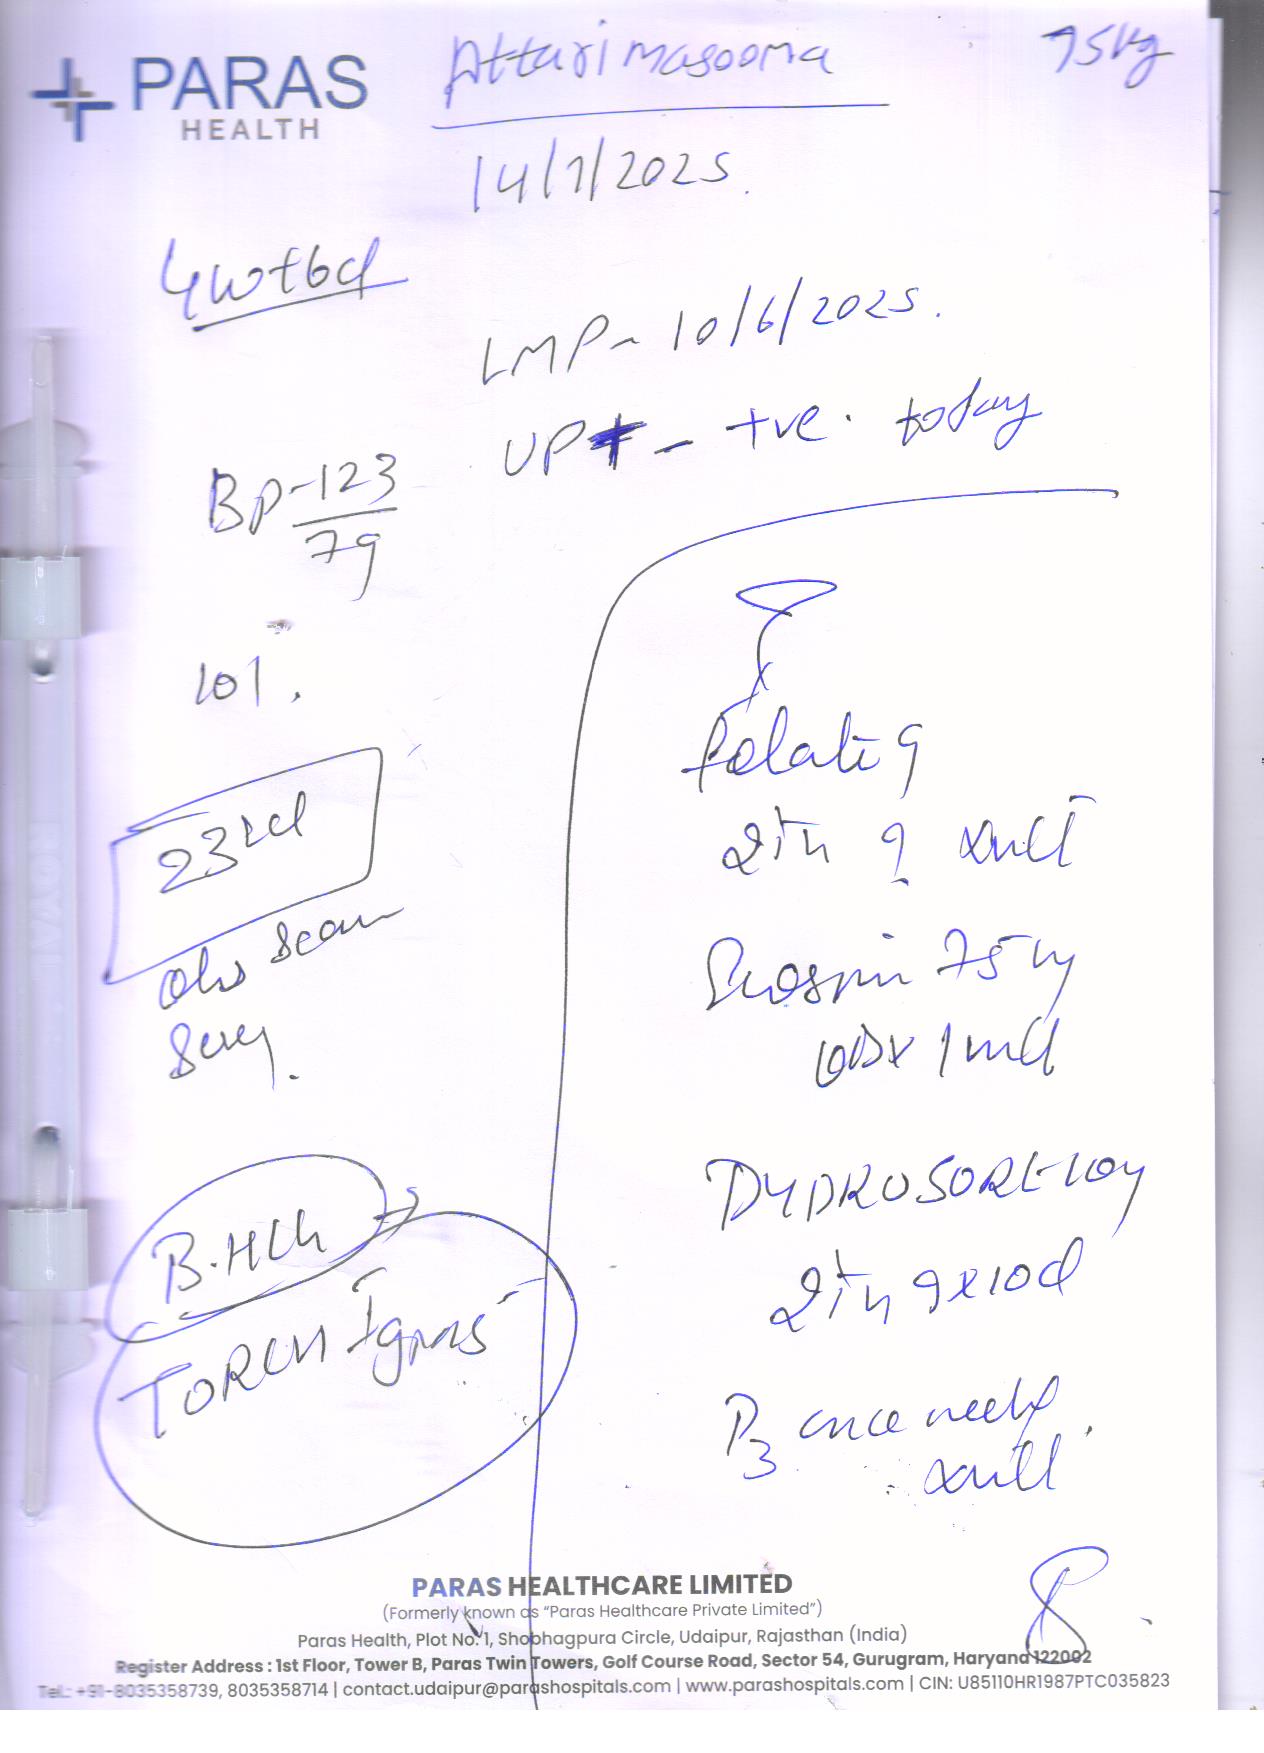 PARAS
HEALTH
Attari masooma
75kg
14/7/2025.
4w+6d
LMP - 10/6/2025.
UPT - +ve. today
BP - 123
79
101.
23rd
obs scan
B.HCG
TORCH Igm
2 tn
Ecospin 75 mg
OD x 1 mth
10mg
2 tn x 10d
D3 once week
PARAS HEALTHCARE LIMITED
(Formerly known as "Paras Healthcare Private Limited")
Paras Health, Plot No. 1, Shobhagpura Circle, Udaipur, Rajasthan (India)
Register Address : 1st Floor, Tower B, Paras Twin Towers, Golf Course Road, Sector 54, Gurugram, Haryana 122002
Tel.: +91-8035358739, 8035358714 | contact.udaipur@parashospitals.com | www.parashospitals.com | CIN: U85110HR1987PTC035823